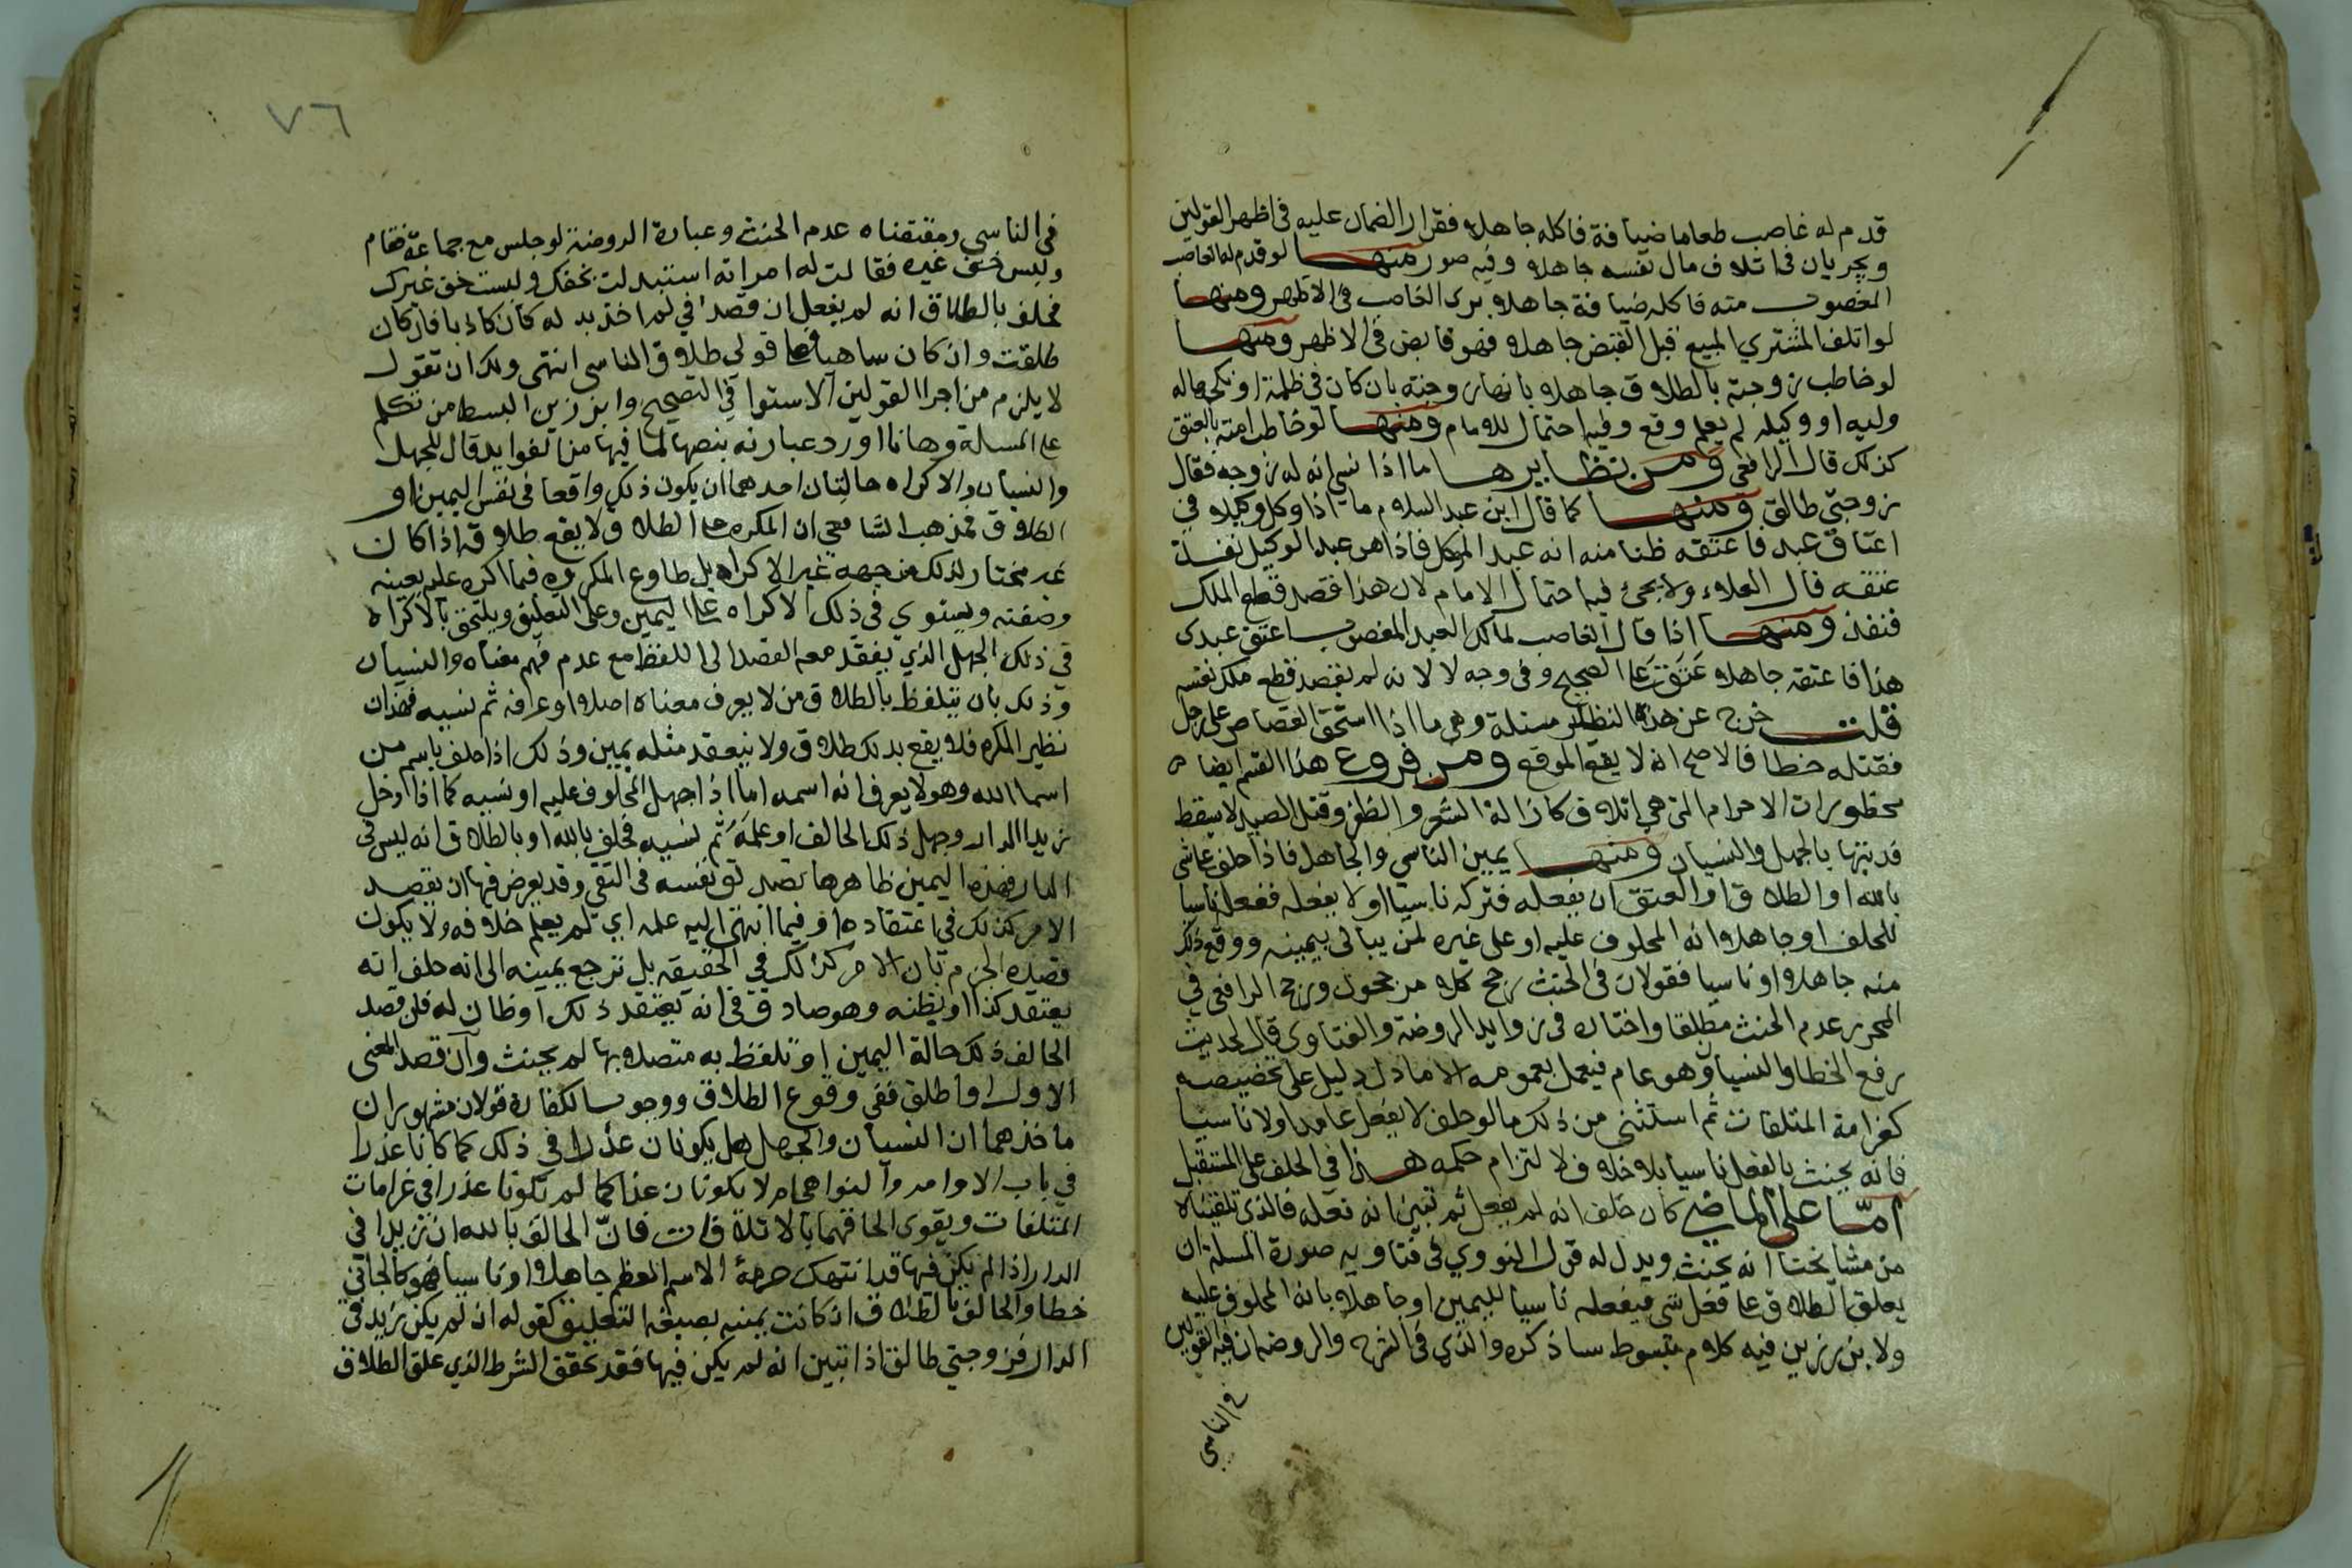 قدم له غاصب طعاما ضيافة فاكله جاهلا فقرار الضمان عليه في اظهر القولين
ويجريان في اتلاف مال نفسه جاهلا وفيه صور منها لو قدم له الغاصب
المغصوب منه فاكله ضيافة جاهلا برى الغاصب في الاظهر ومنها
لو اتلف المشتري المبيع قبل القبض جاهلا فهو قابض في الاظهر ومنها
لو خاطب زوجته بالطلاق جاهلا بانها زوجته بان كان في ظلمة او نكحها له
وليه او وكيله لم يعلم وقع وفيه احتمال للامام ومنها لو خاطب امته بالعتق
كذلك قال الرافعي ومن نظايرها ما اذا نسى انه له زوجه فقال
زوجتي طالق ومنها كما قال ابن عبد السلام ما اذا وكل وكيلا في
اعتاق عبد فاعتقه ظنا منه انه عبد الموكل فاذا هو عبد الوكيل نفذ
عتقه قال العلاء ولا يجئ فيه احتمال الامام لان هذا قصد قطع الملك
فنفذ ومنها اذا قال الغاصب لمالك العبد المغصوب اعتق عبدى
هذا فاعتقه جاهلا عتق على الصحيح وفي وجه لا لانه لم يقصد قطع ملك نفسه
قلت خرج عن هذه النظاير مسئلة وهي ما اذا استحق القصاص على رجل
فقتله خطا فالاصح انه لا يقع الموقع ومن فروع هذا القسم ايضا
محظورات الاحرام التي هي اتلاف كازالة الشعر والظفر وقتل الصيد لا يسقط
فديتها بالجهل والنسيان ومنها يمين الناسي والجاهل فاذا حلف على شى
بالله او الطلاق او العتق ان يفعله فتركه ناسيا او لا يفعله ففعله ناسيا
للحلف او جاهلا انه المحلوف عليه او على غيره لمن يبالى بيمينه ووقع ذلك
منه جاهلا او ناسيا فقولان في الحنث رجح كلا مرجحون ورجح الرافعي في
المحرر عدم الحنث مطلقا واختاره في زوايد الروضة والفتاوى قال لحديث
رفع الخطا والنسيان وهو عام فيعمل بعمومه الا ما دل دليل على تخصيصه
كغرامة المتلفات ثم استثنى من ذلك ما لو حلف لا يفعل عامدا ولا ناسيا
فانه يحنث بالفعل ناسيا بلا خلاف لالتزام حكمه هذا في الحلف على المستقبل
اما على الماضي كان حلف انه لم يفعل ثم تبين انه فعله فالذي تلقيناه
من مشايخنا انه يحنث ويدل له قول النووي في فتاويه صورة المسلة ان
يعلق الطلاق على فعل شى فيفعله ناسيا لليمين او جاهلا بانه المحلوف عليه
ولابن رزين فيه كلام مبسوط ساذكره والذي في الشرح والروضة ان فيه القولين
في الناسي
٧٦
في الناسي ومقتضاه عدم الحنث وعبارة الروضة لو جلس مع جماعة فقام
ولبس خف غيره فقالت له امراته استبدلت بخفك ولبست خف غيرك
فحلف بالطلاق انه لم يفعل ان قصد اني لم اخذ بدله كان كاذبا فان كان
طلقت وان كان ساهيا فعلى قولي طلاق الناسي انتهى ولك ان تقول
لا يلزم من اجرا القولين الاستوا في التصحيح وابن رزين ابسط من تكلم
على المسلة وها انا اورد عبارته بنصها لما فيها من الفوايد قال للجهل
والنسيان والاكراه حالتان احدهما ان يكون ذلك واقعا في نفس اليمين او
الطلاق فمذهب الشافعي ان المكره على الطلاق لا يقع طلاقه اذا كان
غير مختار لذلك من جهه غير الاكراه بل طاوع المكره فيما اكرهه عليه بعينه
وصفته ويستوي في ذلك الاكراه على اليمين وعلى التعليق ويلتحق بالاكراه
في ذلك الجهل الذي يفقد معه القصد الى اللفظ مع عدم فهم معناه والنسيان
وذلك بان يتلفظ بالطلاق من لا يعرف معناه اصلا او عرفه ثم نسيه فهذان
نظير المكره فلا يقع بذلك طلاق ولا ينعقد مثله يمين وذلك اذا حلف باسم من
اسما الله وهو لا يعرف انه اسمه اما اذا جهل المحلوف عليه او نسيه كما اذا دخل
زيد الدار وجهل ذلك الحالف او علمه ثم نسيه فحلف بالله او بالطلاق انه ليس في
الدار فهذه اليمين ظاهرها تصديق نفسه في النفي وقد يعرض فيها ان يقصد
الامر كذلك في اعتقاده او فيما انتهى اليه علمه اي لم يعلم خلافه ولا يكون
قصده الجزم بان الامر كذلك في الحقيقه بل ترجع يمينه الى انه حلف انه
يعتقد كذا او يظنه وهو صادق في انه يعتقد ذلك او ظان له فان قصد
الحالف ذلك حالة اليمين او تلفظ به متصلا بها لم يحنث وان قصد المعنى
الاول او اطلق ففي وقوع الطلاق ووجوب الكفارة قولان مشهوران
ماخذهما ان النسيان والجهل هل يكونان عذرا في ذلك كما كانا عذرا
في باب الاوامر والنواهي ام لا يكونان عذرا كما لم تكونا عذرا في غرامات
المتلفات ويقوى الحاقهما بالاتلافات فان الحالف بالله ان زيدا في
الدار اذا لم يكن فيها قد انتهك حرمة الاسم العظم جاهلا او ناسيا فهو كالجاني
خطا والحالف بالطلاق ان كانت يمينه بصيغة التعليق كقوله ان لم يكن زيد في
الدار فزوجتي طالق اذا تبين انه لم يكن فيها فقد تحقق الشرط الذي علق الطلاق